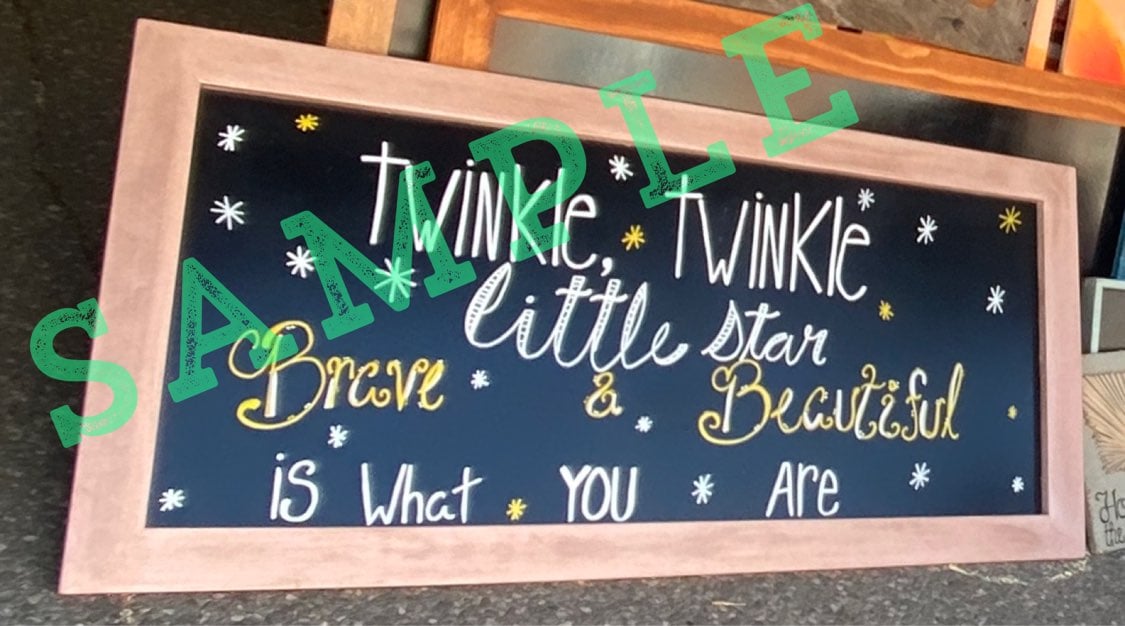 SAMPLE
Twinkle, Twinkle
little star
Brave & Beautiful
is What YOU Are
Ho
the